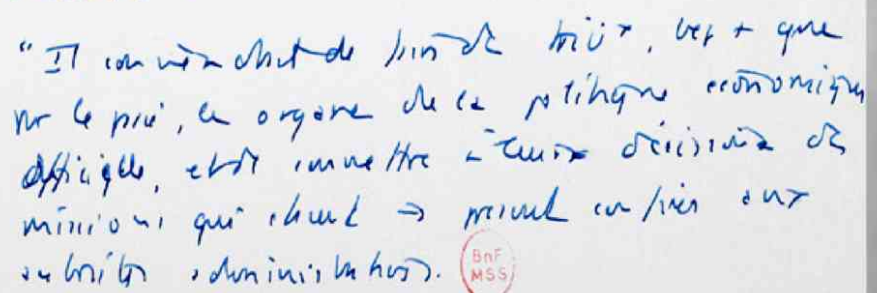 "Il conviendrait de faire des tribx, bcp + que
par le passé, les organes de la politique économique
officielle, et de soumettre à leurs décisions des
missions qui étaient → présent confiées aux
autorités administratives.
BnF
MSS